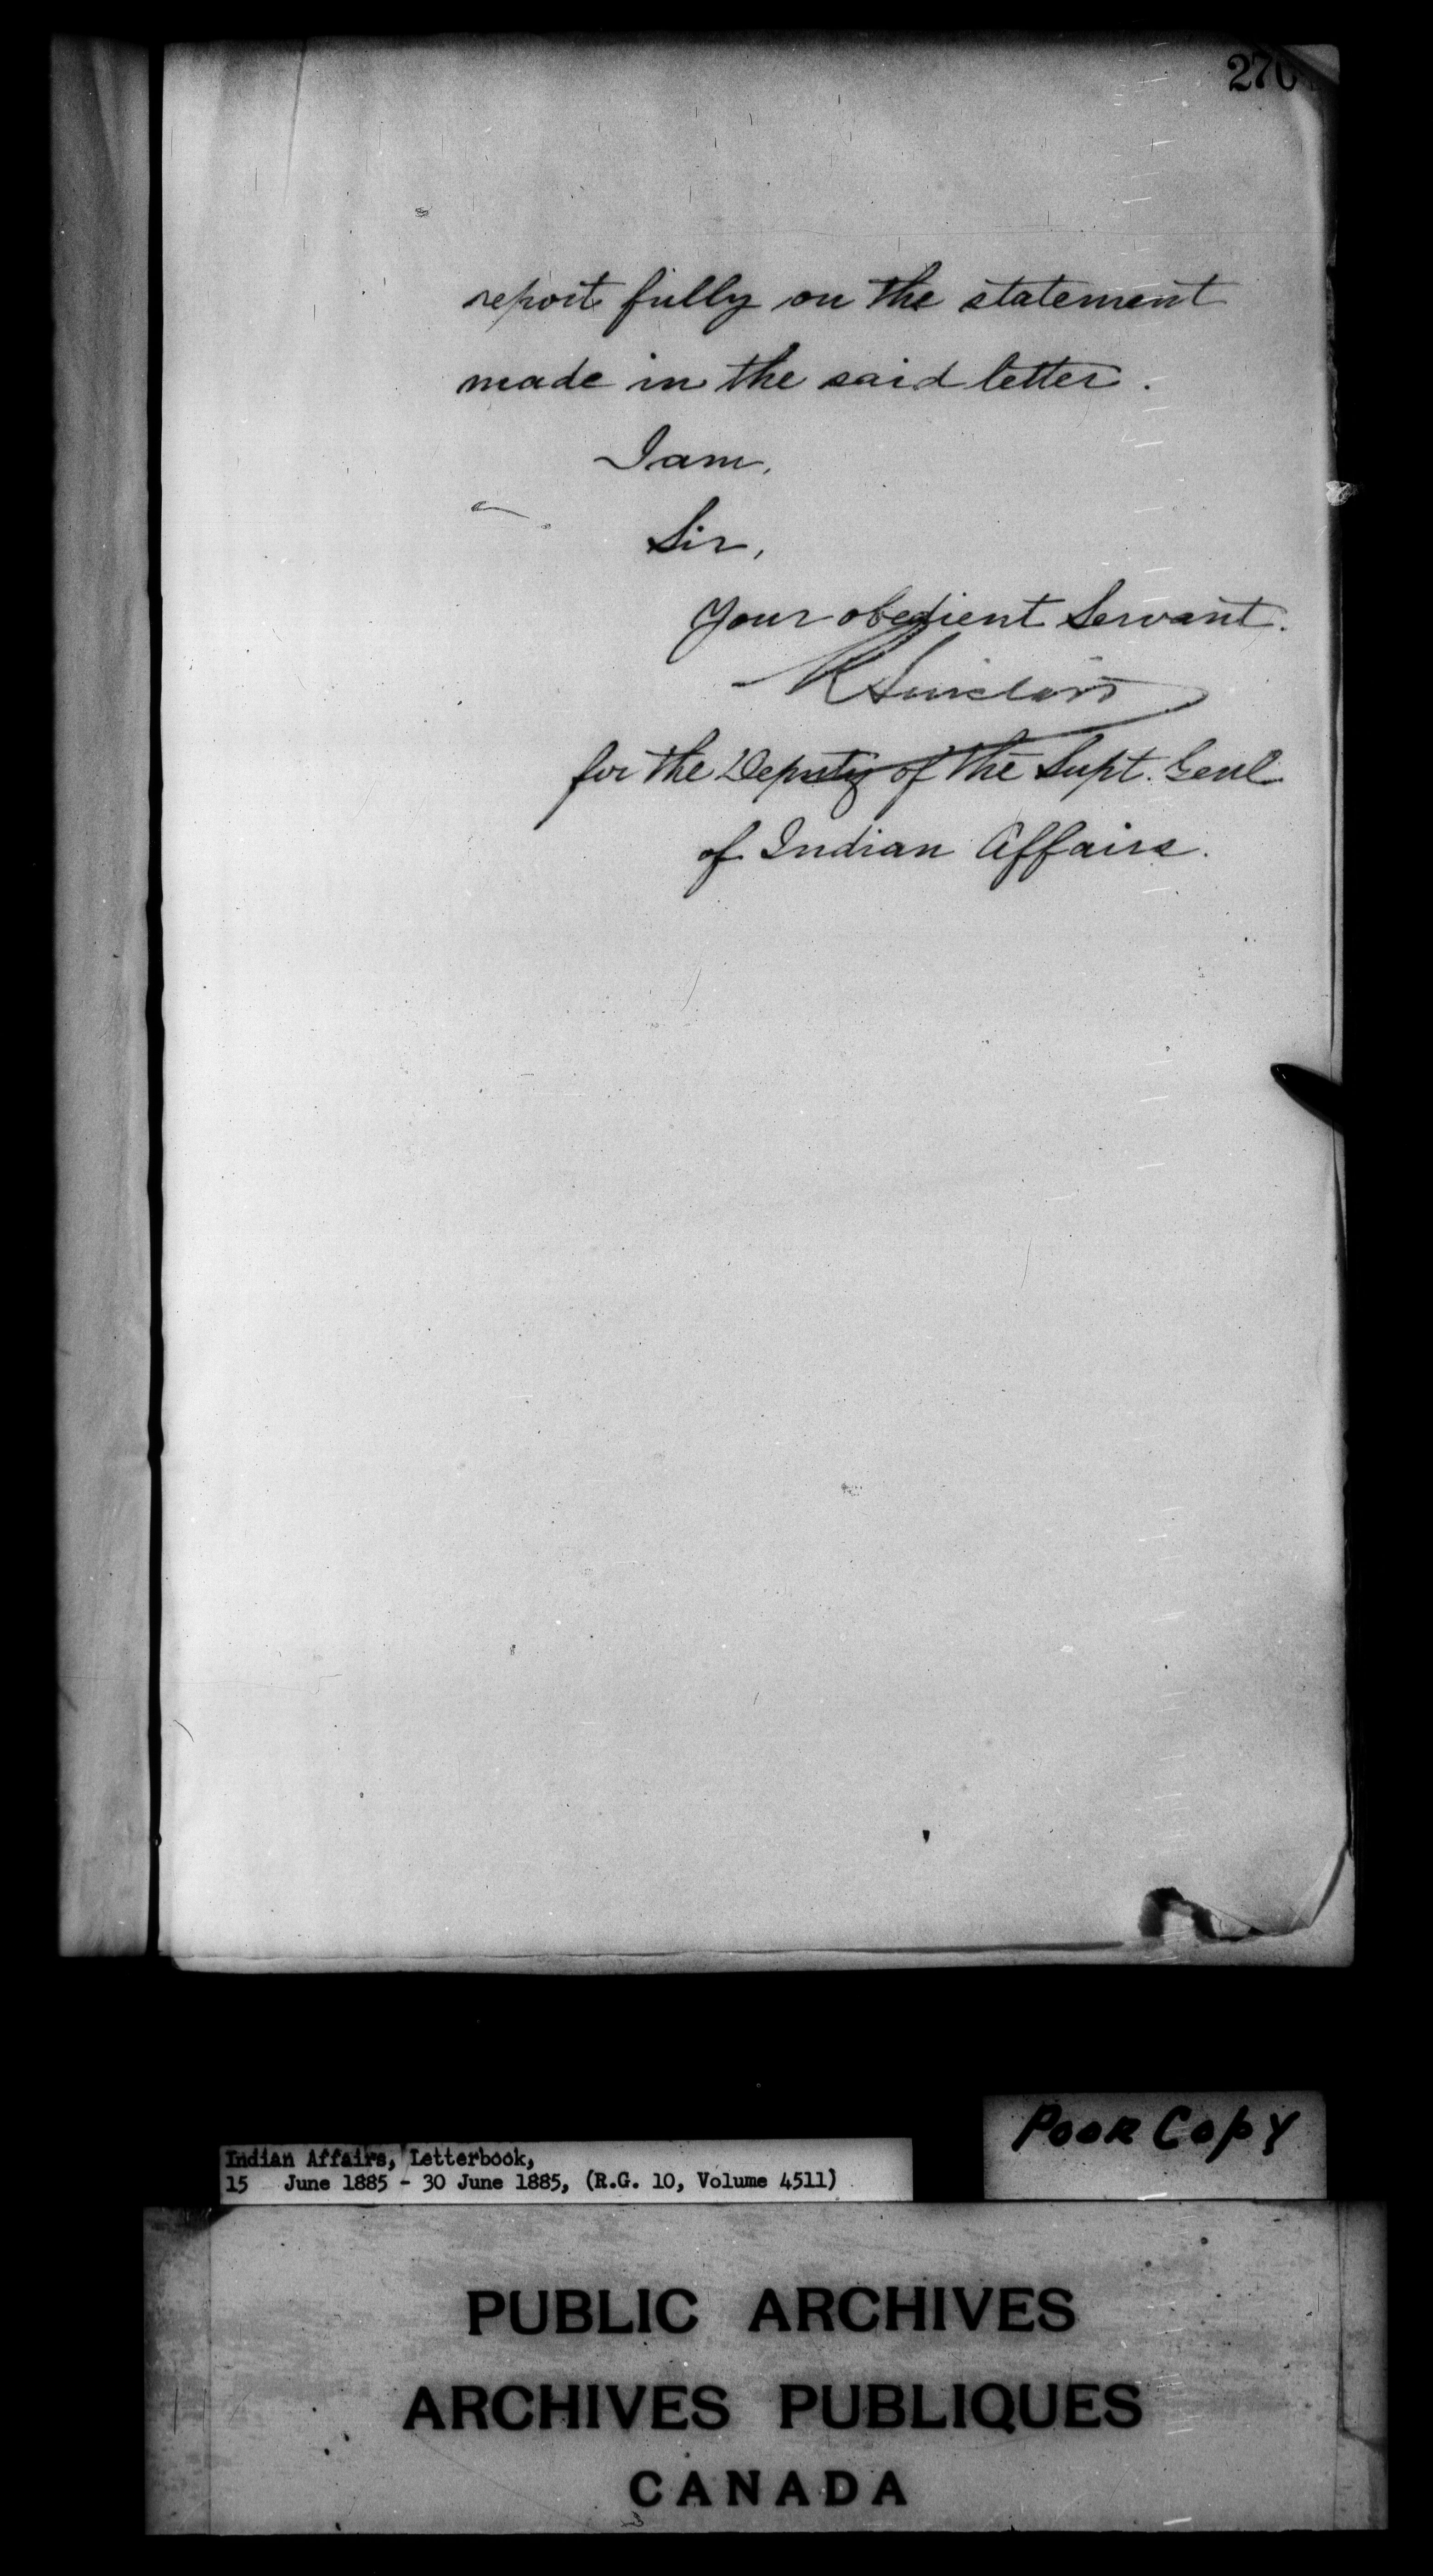 270
report fully on the statement
made in the said letter.
I am,
Sir,
Your obedient Servant.
R Sinclair
for the Deputy of the Supt. Genl
of Indian Affairs.
Poor Copy
Indian Affairs, Letterbook,
15 June 1885 - 30 June 1885, (R.G. 10, Volume 4511)
PUBLIC ARCHIVES
ARCHIVES PUBLIQUES
CANADA